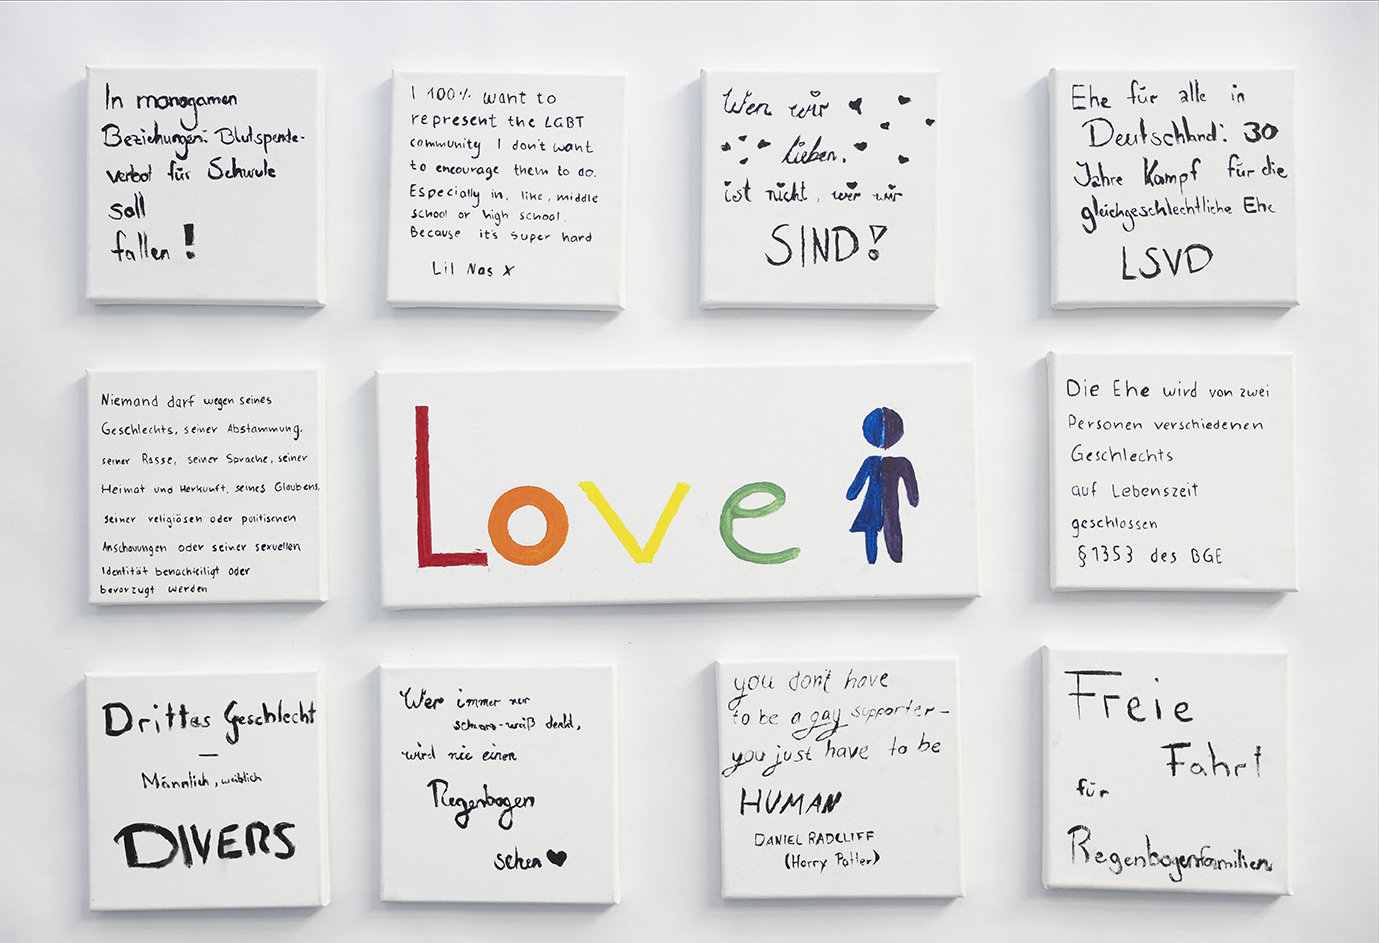 In monogamen
Beziehungen: Blutspende-
verbot für Schwule
soll
fallen!
I 100% want to
represent the LGBT
community I don't want
to encourage them to do.
Especially in, like, middle
school or high school.
Because it's super hard
Lil Nas X
Wen wir
lieben,
ist nicht, wer wir
SIND!
Ehe für alle in
Deutschland: 30
Jahre Kampf für die
gleichgeschlechtliche Ehe
LSVD
Niemand darf wegen seines
Geschlechts, seiner Abstammung,
seiner Rasse, seiner Sprache, seiner
Heimat und Herkunft, seines Glaubens,
seiner religiösen oder politischen
Anschauungen oder seiner sexuellen
Identität benachteiligt oder
bevorzugt werden
Love
Die Ehe wird von zwei
Personen verschiedenen
Geschlechts
auf Lebenszeit
geschlossen
§1353 des BGE
Drittes Geschlecht
–
Männlich, weiblich
DIVERS
Wer immer nur
schwarz-weiß denkt,
wird nie einen
Regenbogen
sehen
you don't have
to be a gay supporter–
you just have to be
HUMAN
DANIEL RADCLIFF
(Harry Potter)
Freie
Fahrt
für
Regenbogenfamilien